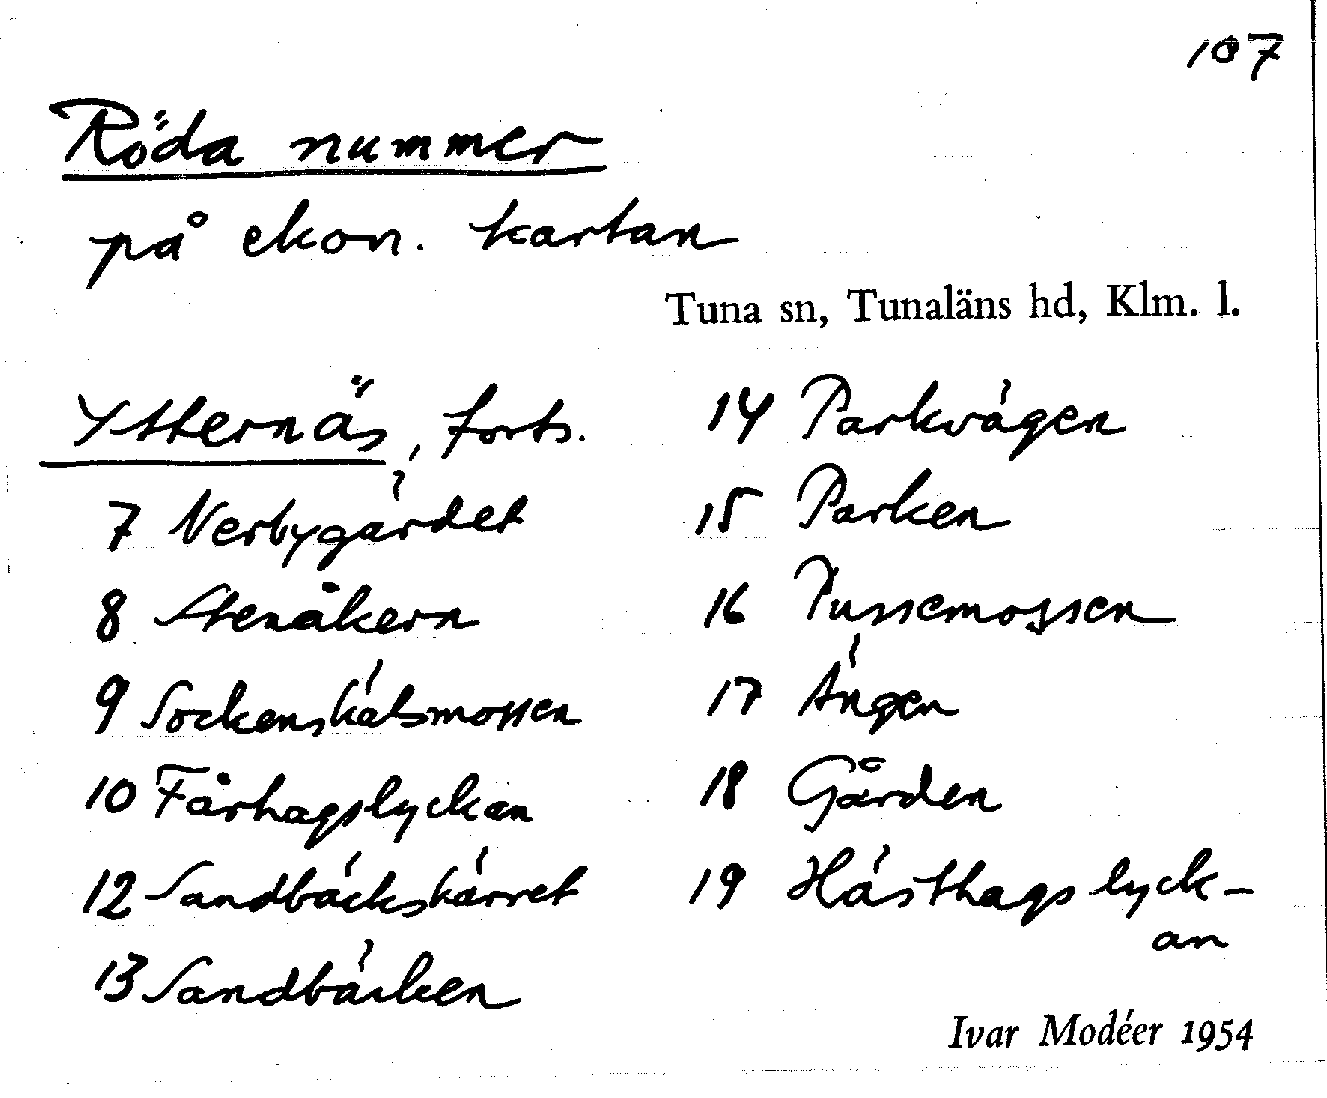 107
Röda nummer
på ekon. kartan
Tuna sn, Tunaläns hd, Klm. l.
Ytternäs, forts.
7 Verbygärdet
8 Stenåkern
9 Sockenskälsmossen
10 Fårhagslyckan
12 Sandbäckskärret
13 Sandbäcken
14 Parkvägen
15 Parken
16 Pussemossen
17 Ängen
18 Gården
19 Hästhagslyck-
an
Ivar Modéer 1954